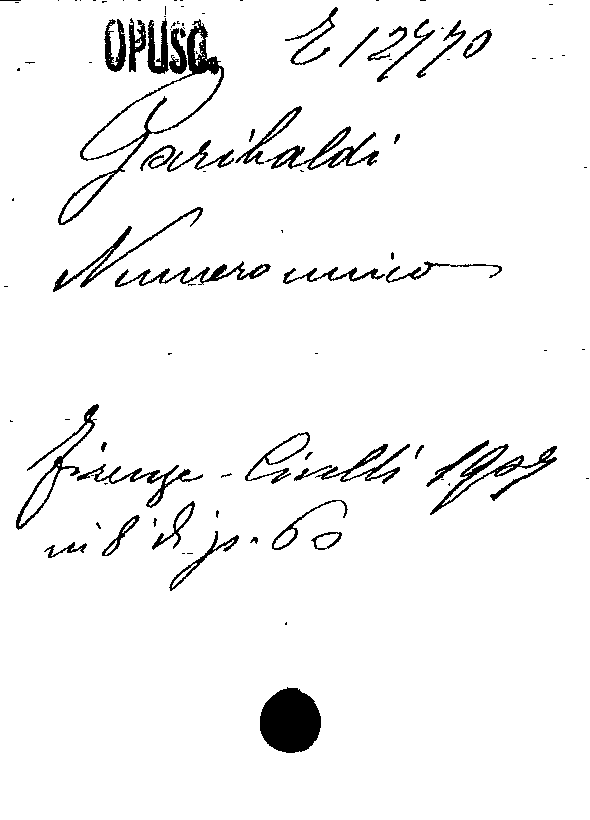 OPUSC. E 12770
Garibaldi
Numero unico
Firenze - Civelli 1907
in 8° di p. 60